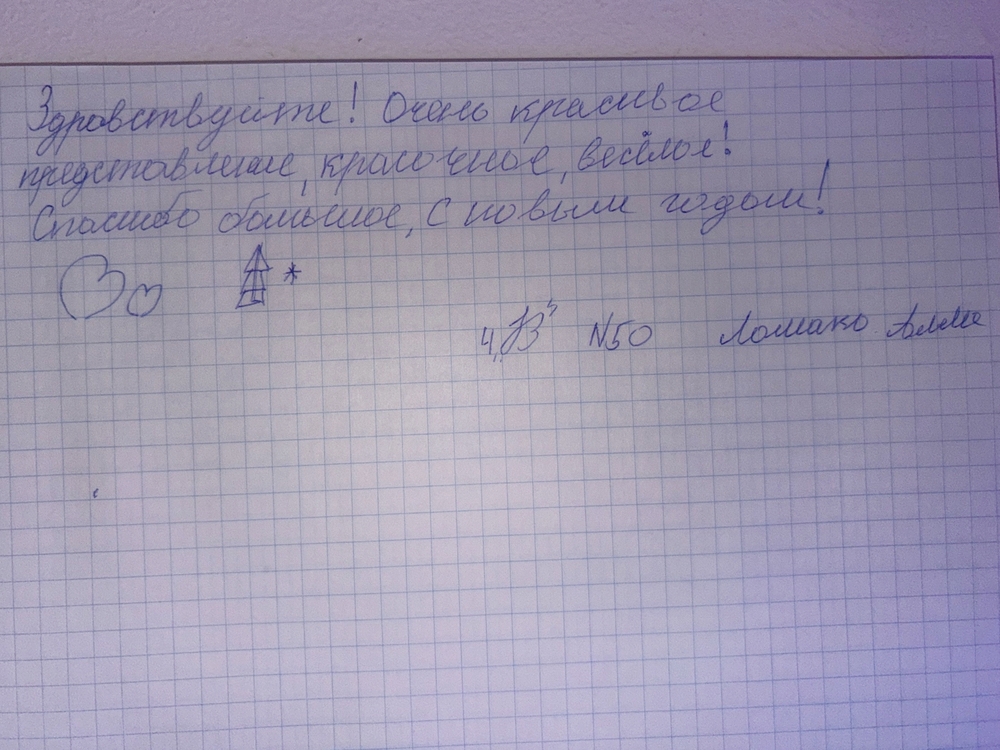 Здравствуйте! Очень красивое
представление, красочное, весёлое!
Спасибо большое, С новым годом!
4 "В" N50 Ломако Алла